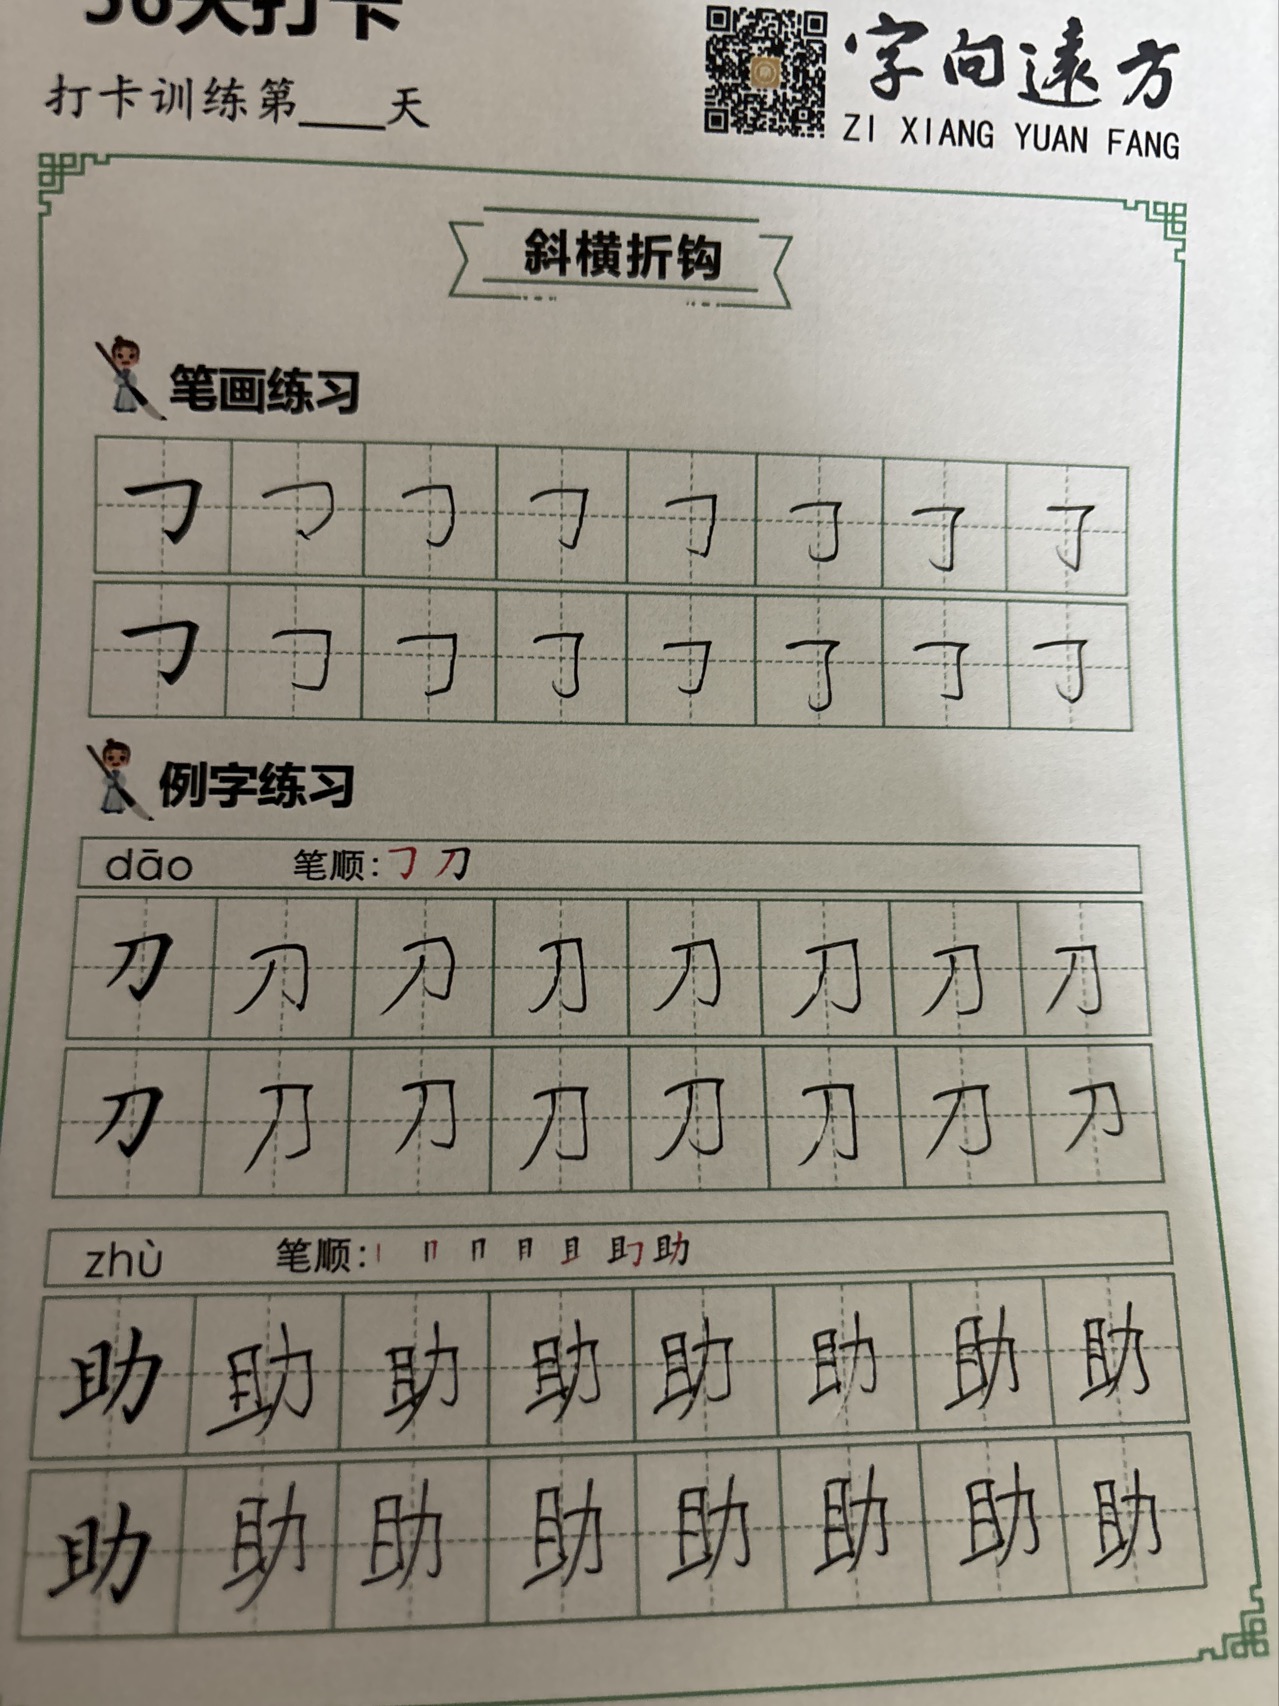 36天打卡
打卡训练第____天
字向遠方
ZI XIANG YUAN FANG
斜横折钩
笔画练习
㇆ ㇆ ㇆ ㇆ ㇆ ㇆ ㇆ ㇆
㇆ ㇆ ㇆ ㇆ ㇆ ㇆ ㇆ ㇆
例字练习
dāo 笔顺:㇆ 刀
刀 刀 刀 刀 刀 刀 刀 刀
刀 刀 刀 刀 刀 刀 刀 刀
zhù 笔顺:丨 冂 冂 月 且 助
助 助 助 助 助 助 助 助
助 助 助 助 助 助 助 助